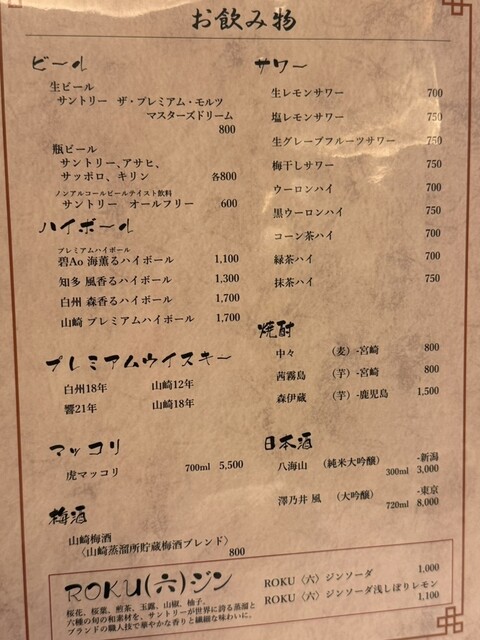 お飲み物
ビール
生ビール
サントリー ザ・プレミアム・モルツ
マスターズドリーム
800
瓶ビール
サントリー、アサヒ、
サッポロ、キリン 各800
ノンアルコールビールテイスト飲料
サントリー オールフリー 600
ハイボール
プレミアムハイボール
碧Ao 海薫るハイボール 1,100
知多 風香るハイボール 1,300
白州 森香るハイボール 1,700
山崎 プレミアムハイボール 1,700
プレミアムウイスキー
白州18年 山崎12年
響21年 山崎18年
マッコリ
虎マッコリ 700ml 5,500
梅酒
山崎梅酒
〈山崎蒸溜所貯蔵梅酒ブレンド〉
800
サワー
生レモンサワー 700
塩レモンサワー 750
生グレープフルーツサワー 750
梅干しサワー 750
ウーロンハイ 700
黒ウーロンハイ 750
コーン茶ハイ 700
緑茶ハイ 700
抹茶ハイ 750
焼酎
中々 (麦)-宮崎 800
茜霧島 (芋)-宮崎 800
森伊蔵 (芋)-鹿児島 1,500
日本酒
八海山 (純米大吟醸) -新潟
300ml 3,000
澤乃井 風 (大吟醸) -東京
720ml 8,000
ROKU(六)ジン
桜花、桜葉、煎茶、玉露、山椒、柚子。
六種の旬の和素材を、サントリーが世界に誇る蒸溜と
ブランドの職人技で華やかな香りと繊細な味わいに。
ROKU〈六〉ジンソーダ 1,000
ROKU〈六〉ジンソーダ浅しぼりレモン
1,100